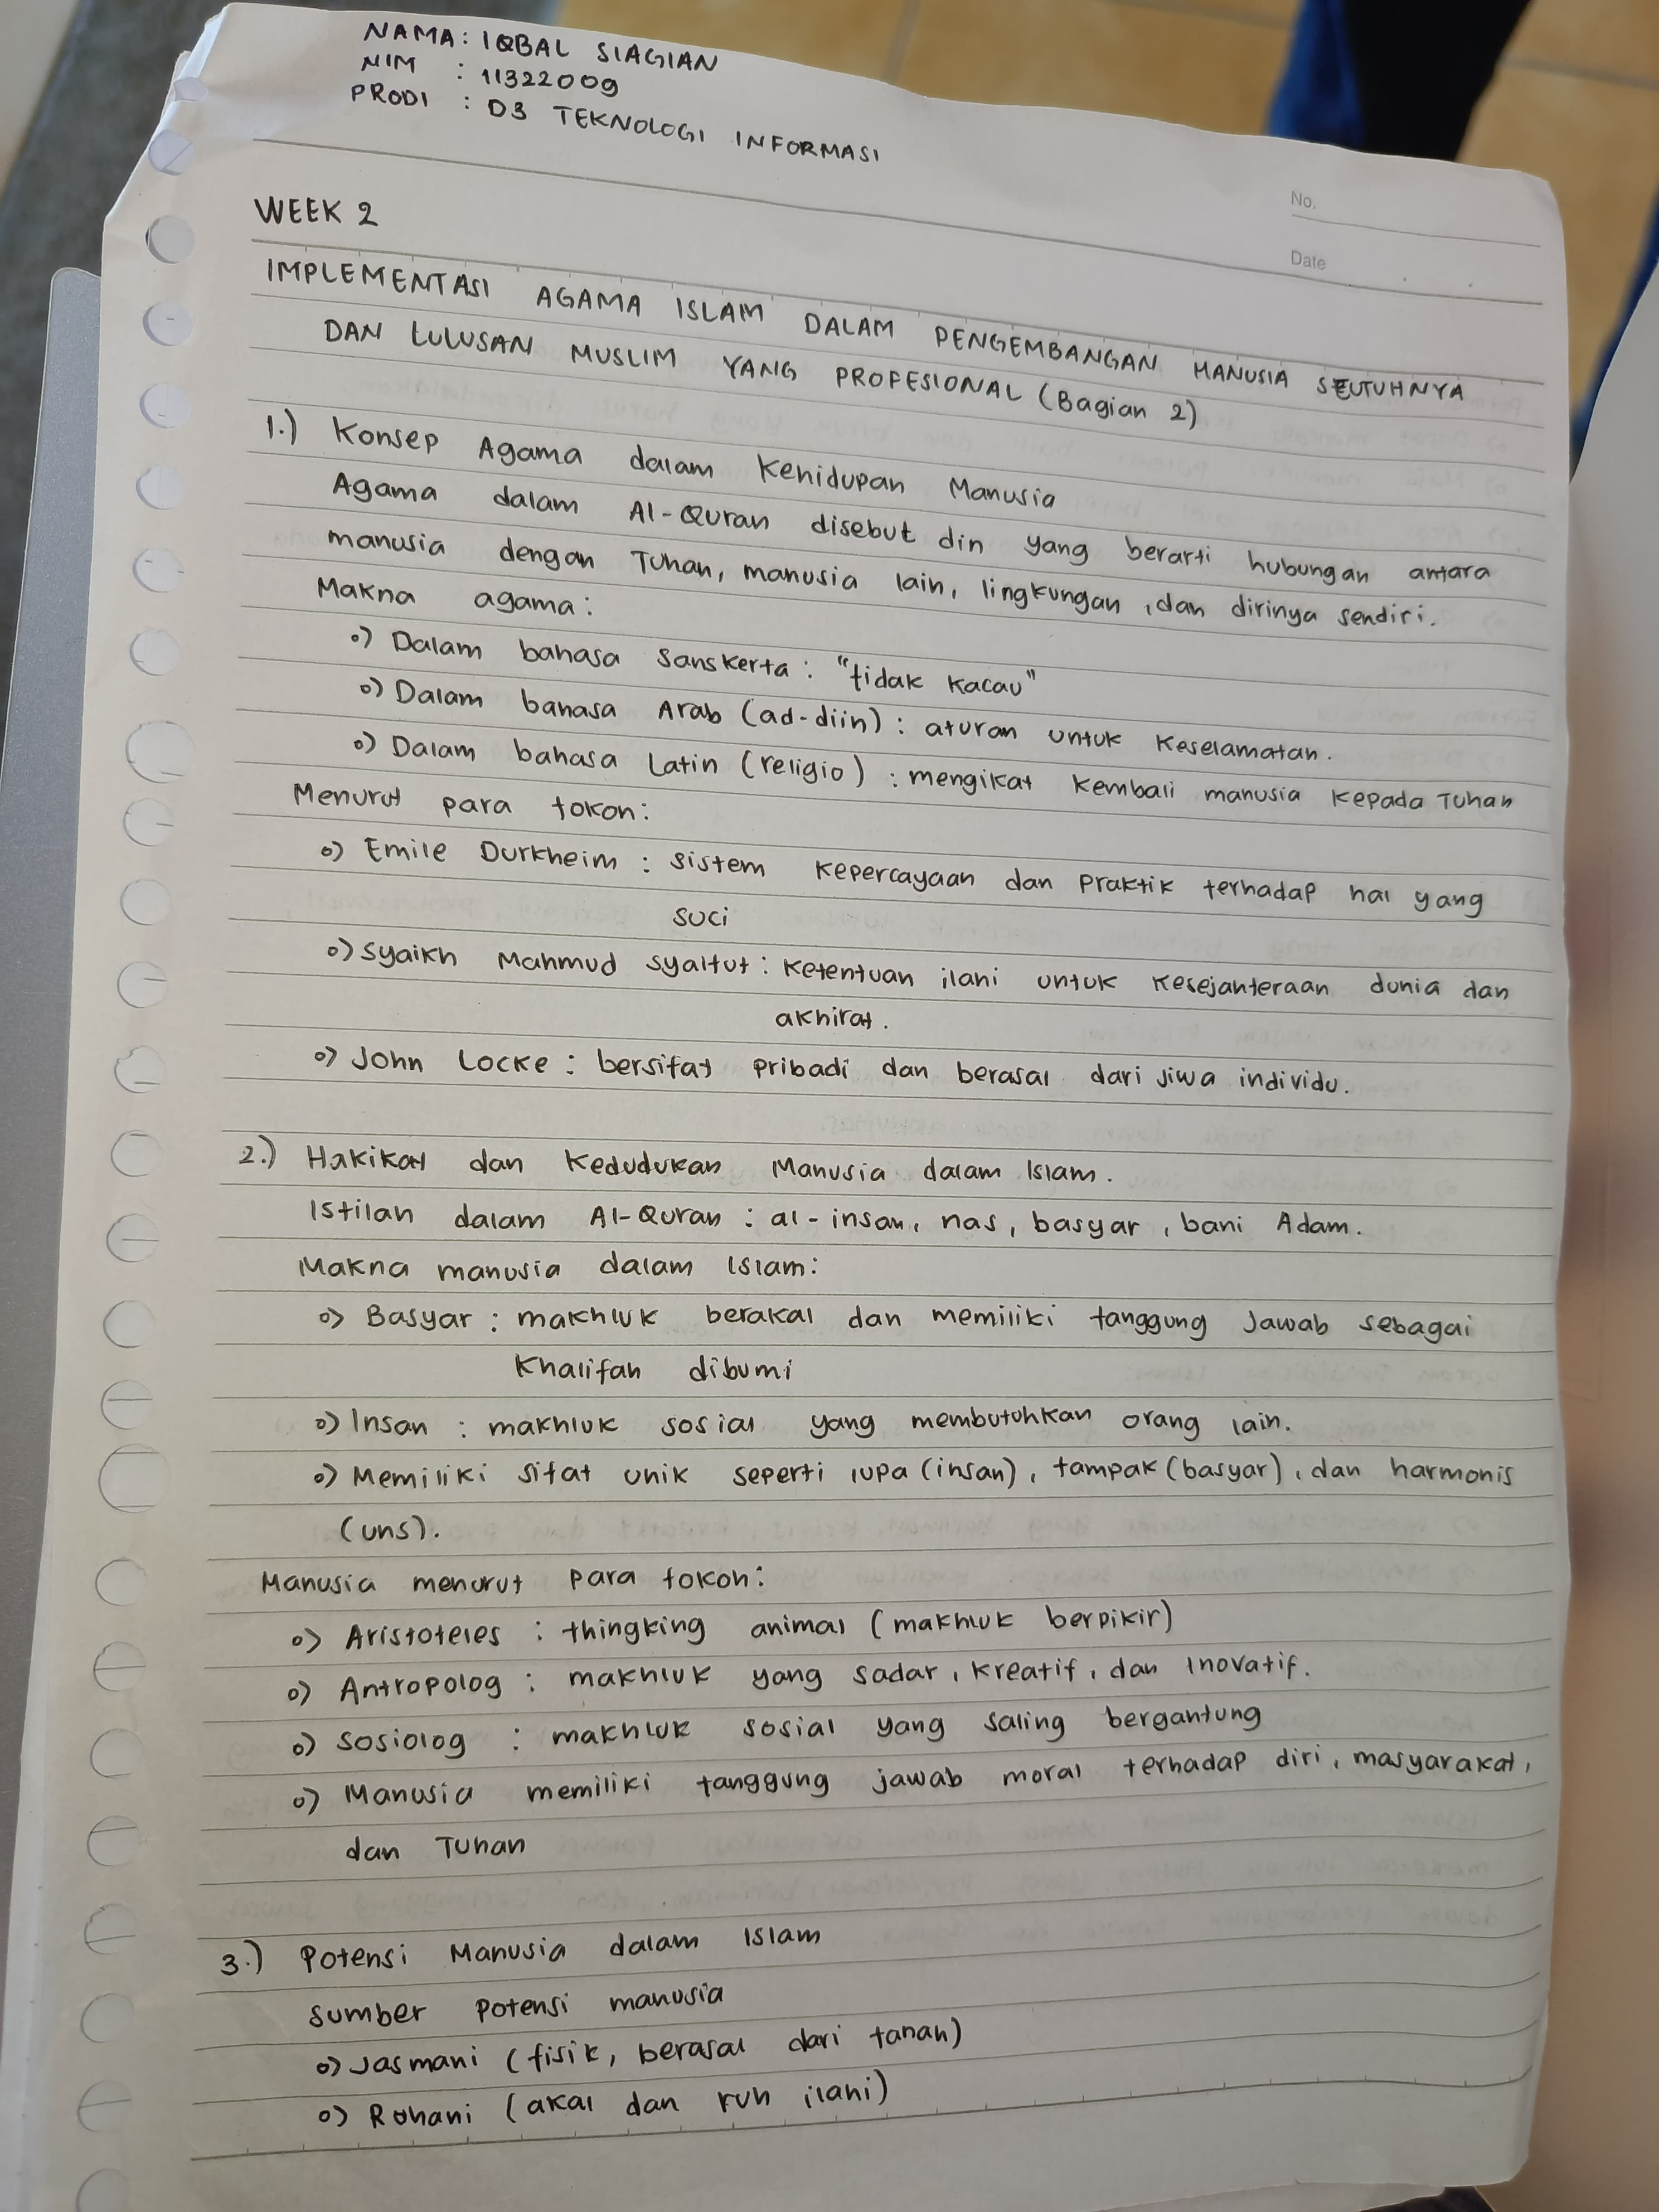 NAMA : IQBAL SIAGIAN
NIM : 11322009
PRODI : D3 TEKNOLOGI INFORMASI
No.
Date
WEEK 2
IMPLEMENTASI AGAMA ISLAM DALAM PENGEMBANGAN MANUSIA SEUTUHNYA
DAN LULUSAN MUSLIM YANG PROFESIONAL (Bagian 2)
1.) Konsep Agama dalam Kehidupan Manusia
Agama dalam Al-Quran disebut din yang berarti hubungan antara
manusia dengan Tuhan, manusia lain, lingkungan, dan dirinya sendiri.
Makna agama :
o) Dalam bahasa Sanskerta : "tidak kacau"
o) Dalam bahasa Arab (ad-diin) : aturan untuk keselamatan.
o) Dalam bahasa Latin (religio) : mengikat kembali manusia kepada Tuhan
Menurut para tokoh :
o) Emile Durkheim : sistem kepercayaan dan praktik terhadap hal yang
suci
o) Syaikh Mahmud Syaltut : ketentuan ilahi untuk kesejahteraan dunia dan
akhirat.
o) John Locke : bersifat pribadi dan berasal dari jiwa individu.
2.) Hakikat dan Kedudukan Manusia dalam Islam.
Istilah dalam Al-Quran : al-insan, nas, basyar, bani Adam.
Makna manusia dalam Islam :
o) Basyar : makhluk berakal dan memiliki tanggung jawab sebagai
khalifah dibumi
o) Insan : makhluk sosial yang membutuhkan orang lain.
o) Memiliki sifat unik seperti lupa (insan), tampak (basyar), dan harmonis
(uns).
Manusia menurut para tokoh :
o) Aristoteles : thingking animal (makhluk berpikir)
o) Antropolog : makhluk yang sadar, kreatif, dan inovatif.
o) Sosiolog : makhluk sosial yang saling bergantung
o) Manusia memiliki tanggung jawab moral terhadap diri, masyarakat,
dan Tuhan
3.) Potensi Manusia dalam Islam
Sumber potensi manusia
o) Jasmani (fisik, berasal dari tanah)
o) Rohani (akal dan ruh ilahi)